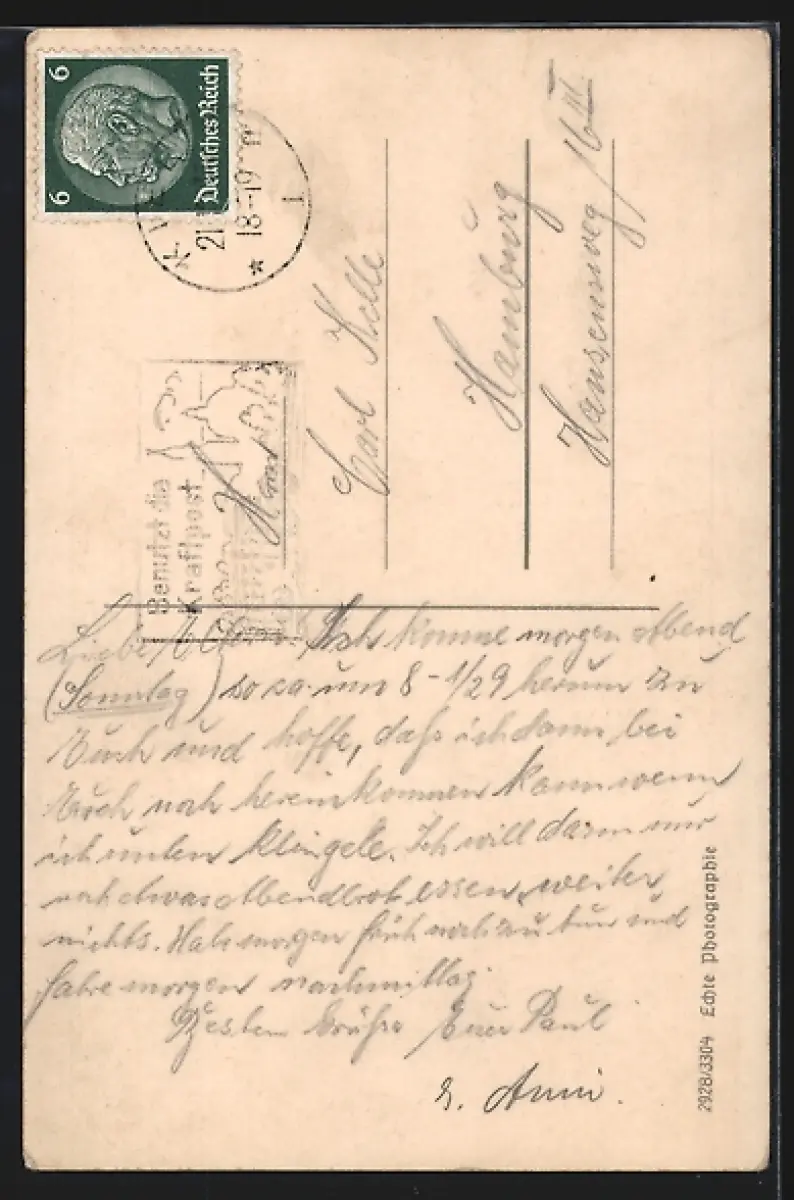 6 6
Deutsches Reich
21
18-19
1
Benutzt die
Kraftpost
Herrn
Carl Kelle
Hamburg
Hansenweg 16 III.
Liebe Eltern. Ich komme morgen Abend
(Sonntag) so ca. um 8 - 1/29 herum zu
Euch und hoffe, daß ich dann bei
Euch noch hereinkommen kann wenn
ich unten klingele. Ich will dann nur
noch etwas Abendbrot essen, weiter
nichts. Habe morgen früh noch zu tun und
fahre morgen nachmittag.
Besten Grüße Euer Paul
u. Anni.
2928/3304 Echte Photographie